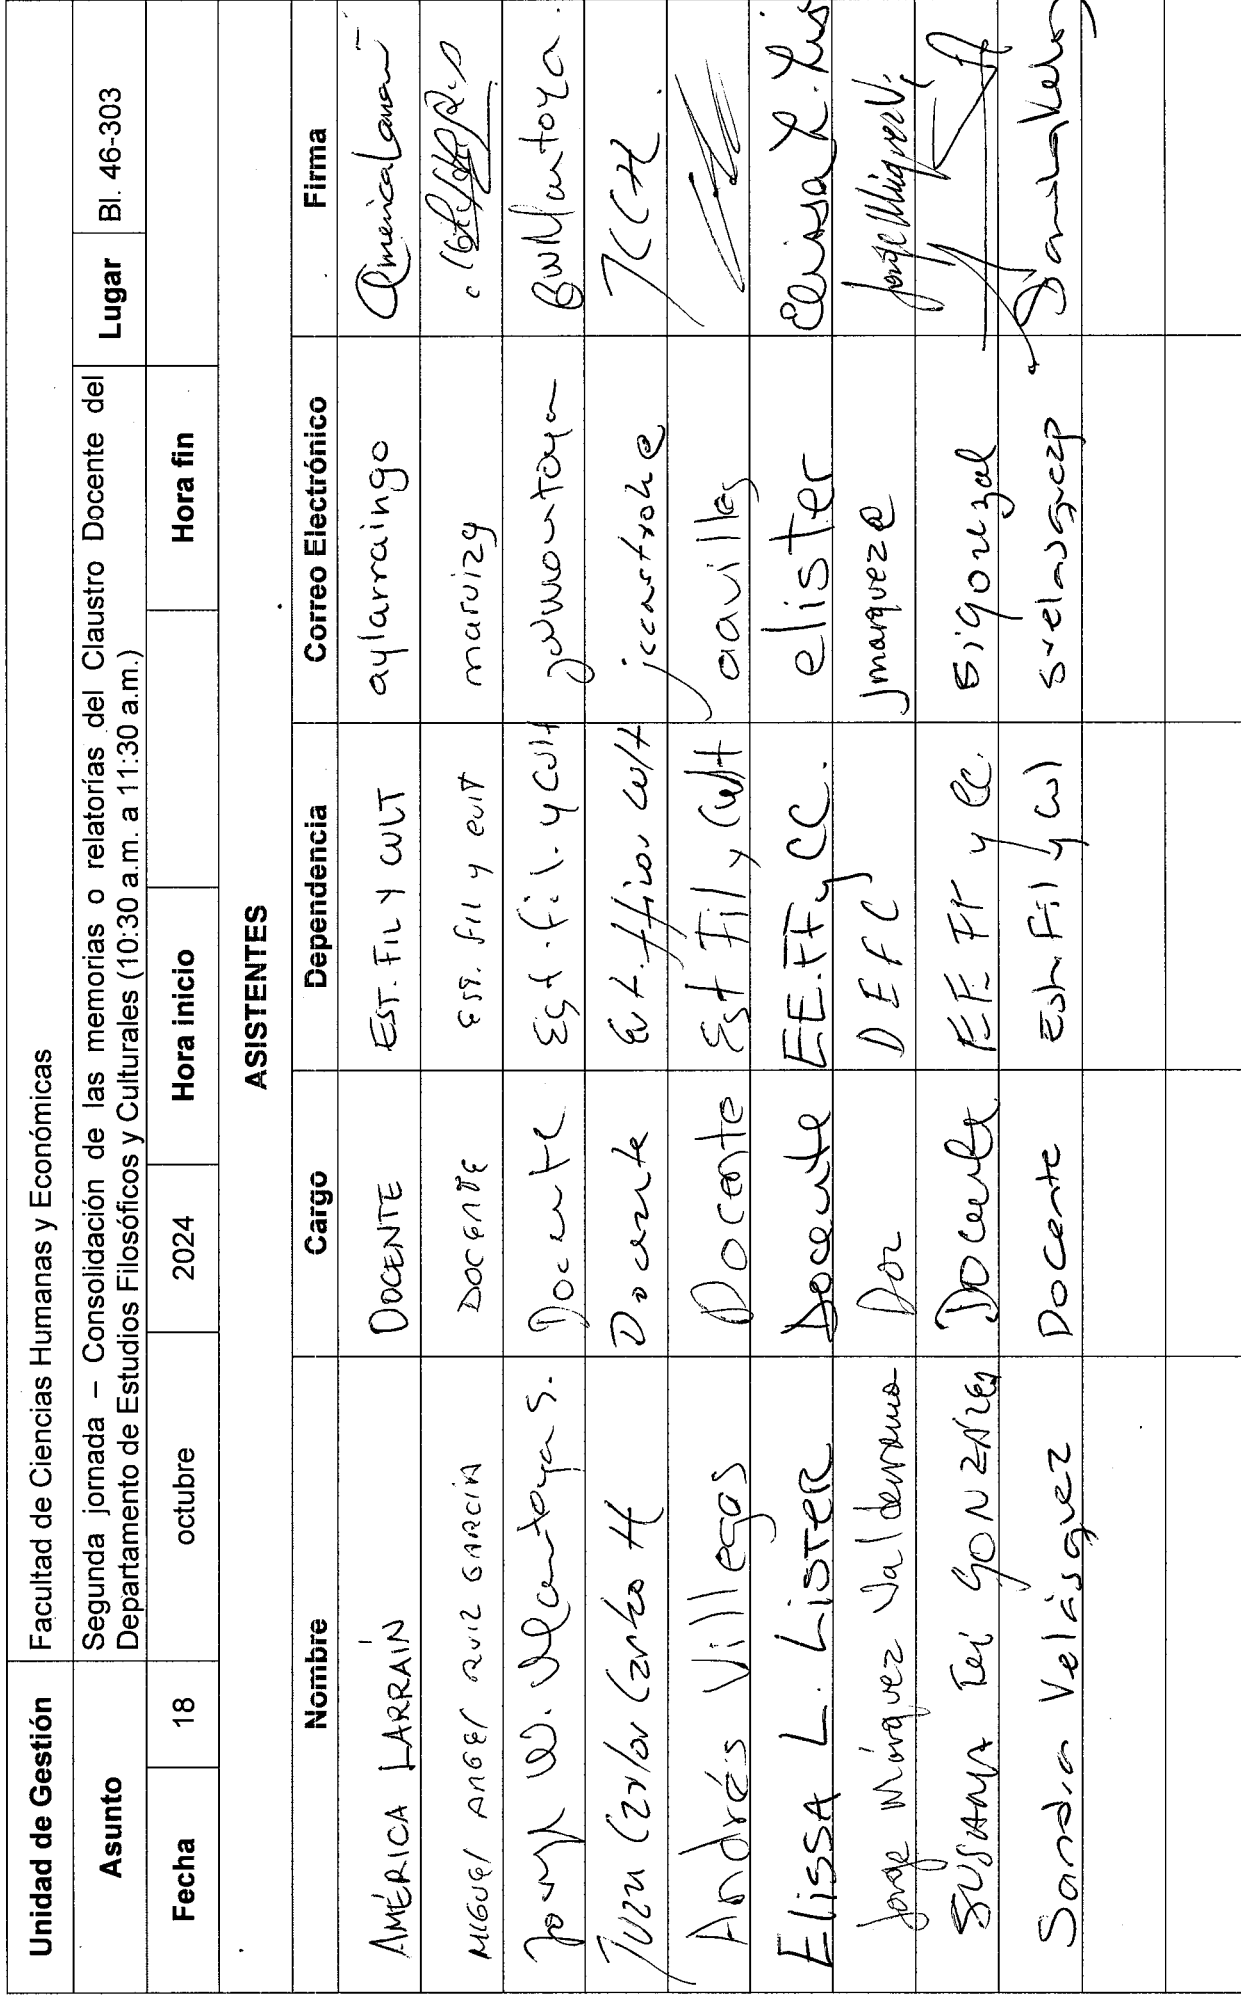 Unidad de Gestión Facultad de Ciencias Humanas y Económicas
Asunto Segunda jornada – Consolidación de las memorias o relatorías del Claustro Docente del
Departamento de Estudios Filosóficos y Culturales (10:30 a.m. a 11:30 a.m.)
Lugar Bl. 46-303
Fecha 18 octubre 2024 Hora inicio Hora fin
ASISTENTES
Nombre Cargo Dependencia Correo Electrónico Firma
AMÉRICA LARRAÍN DOCENTE EST. FIL Y CULT aylarraingo
MIGUEL ANGEL RUIZ GARCÍA DOCENTE EST. FIL y CULT maruizg
W. Montoya S. Docente Est. fil. y Cult
Juan Carlos Castro H Docente jccastrohe JCCH.
Andrés Villegas Docente Est Fil y Cult aavilleg
Elissa L. LISTER Docente EE.FF y CC. elister Elissa L. Lis
Jorge Márquez Valderrama DEFC jmarqueze Jorge Márquez V.
SUSANA GONZALEZ Docente EE FF y CC.
Sandra Velásquez Docente Est Fil y Cul svelasquezp